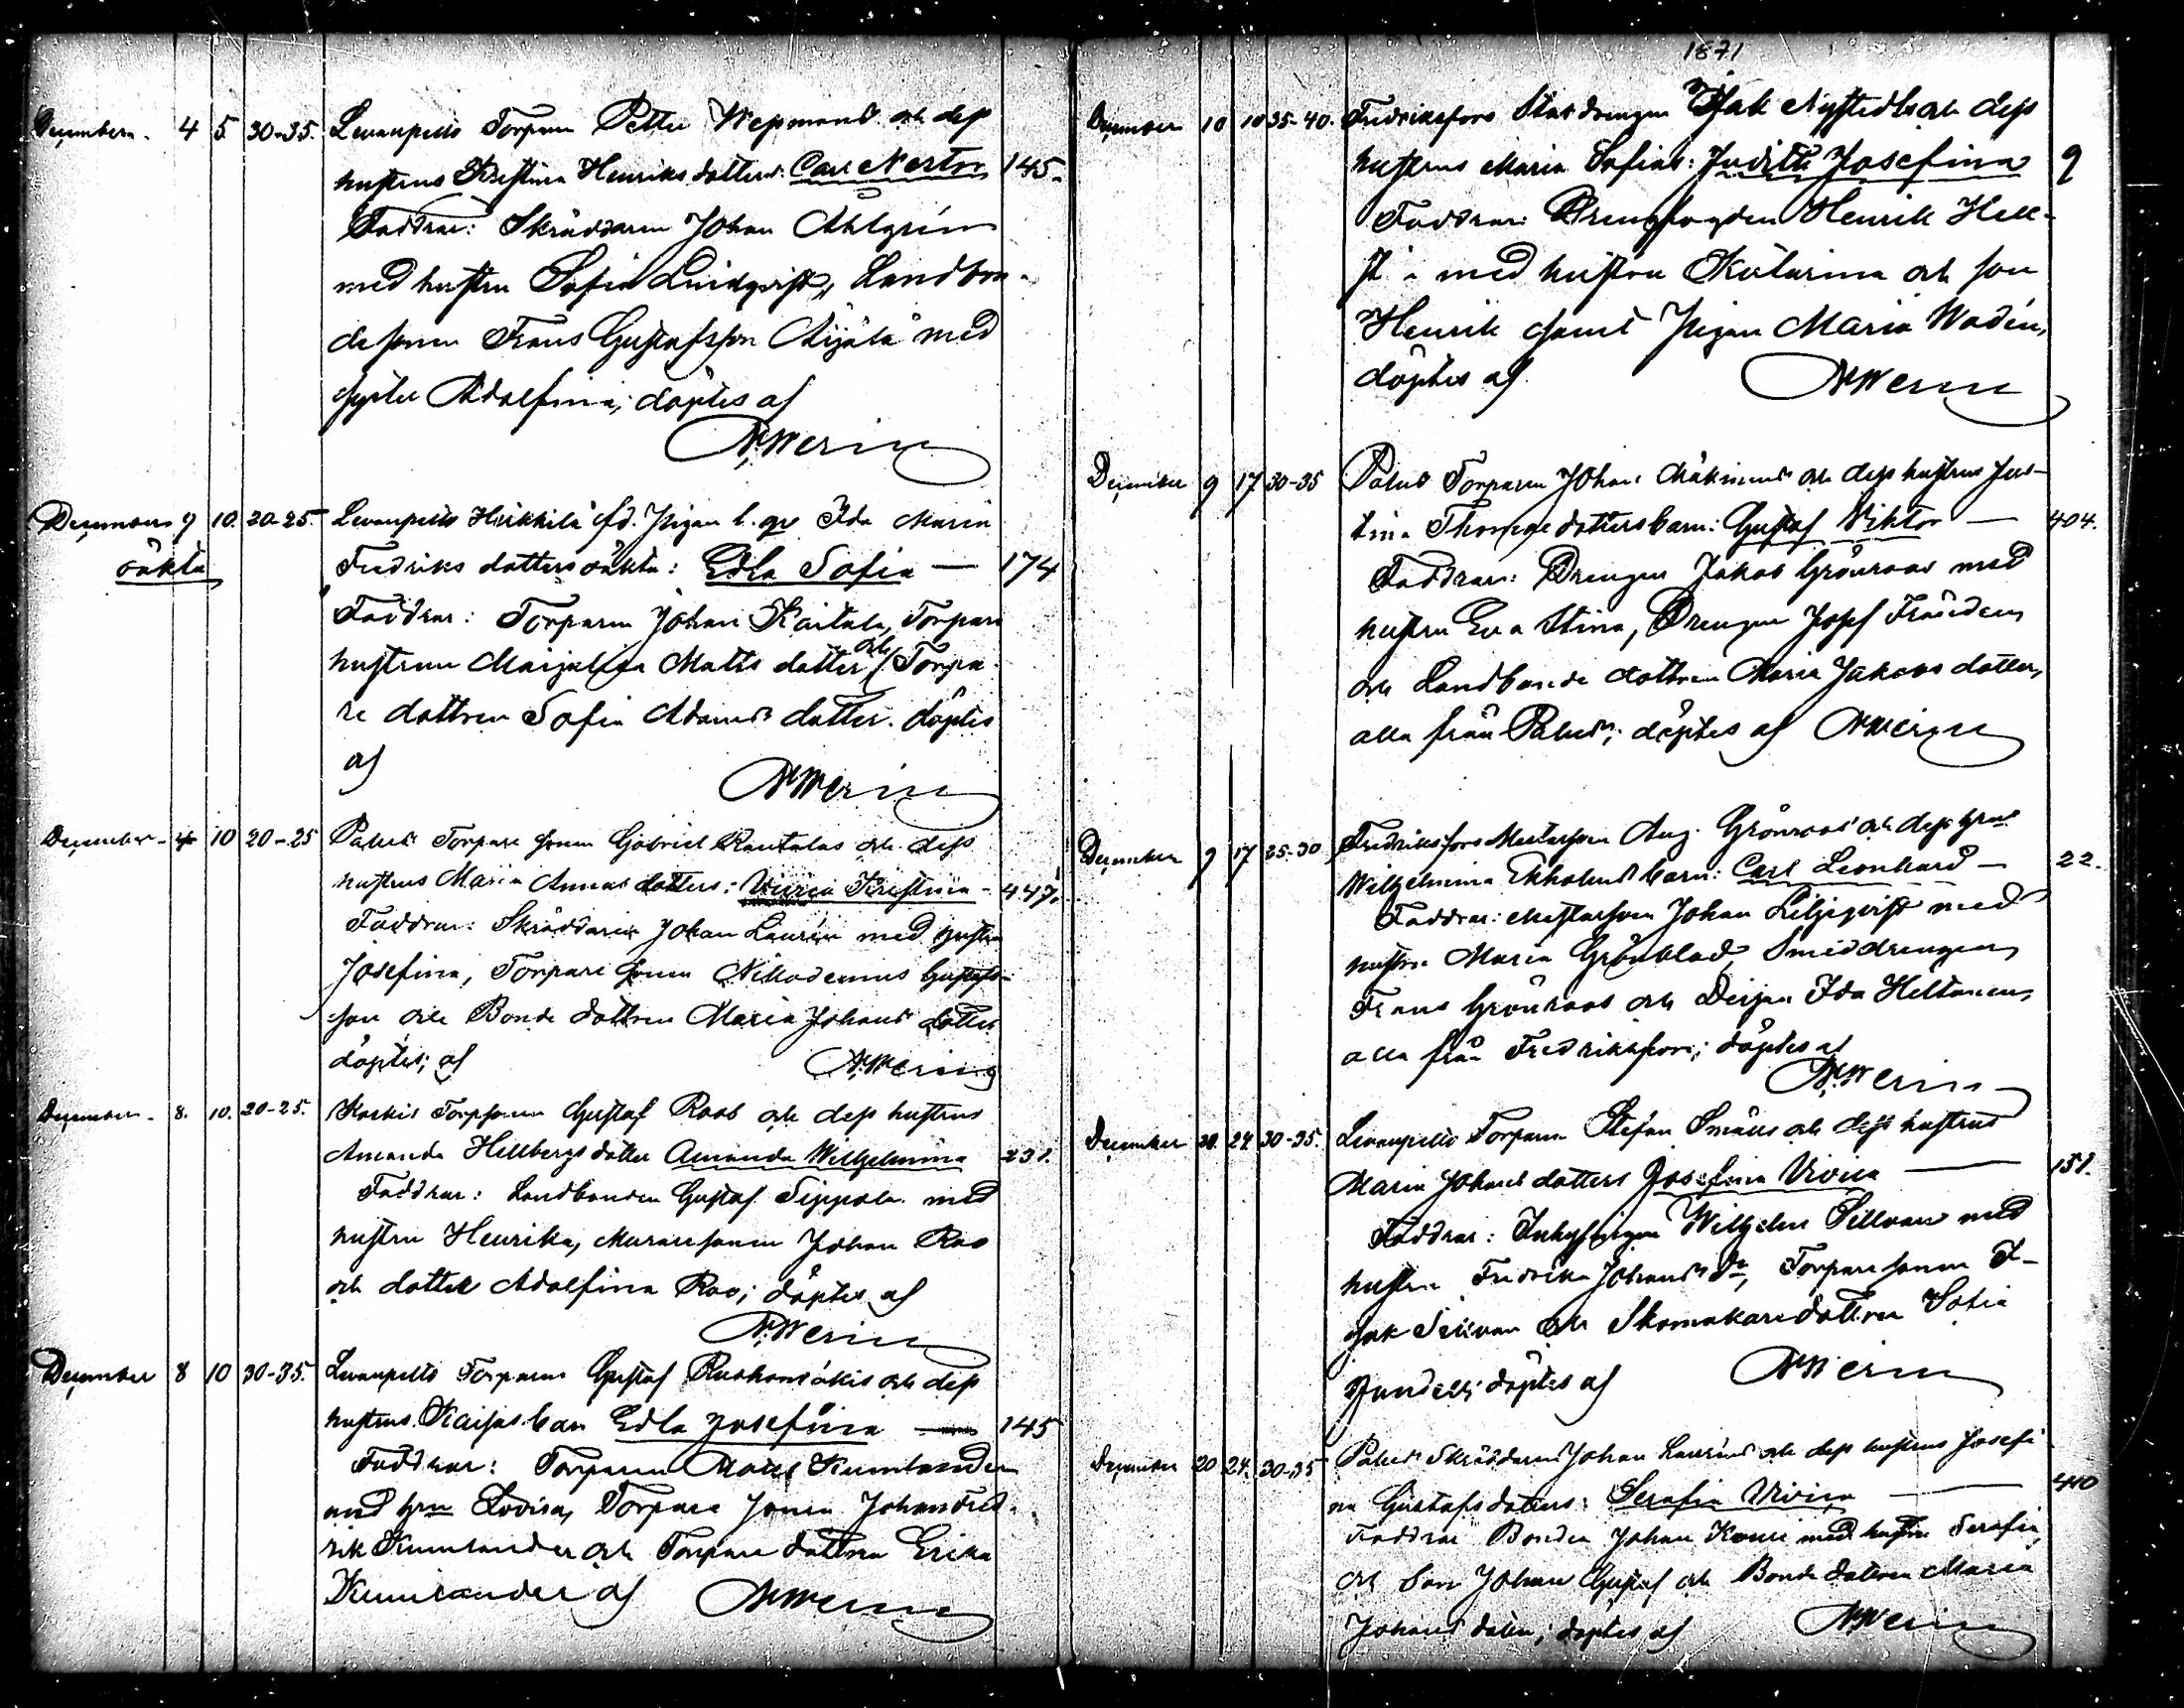 December. 4 5 30-35. Levanpelto Torparen Petter Wepmans och dess
hustrus Kristina Henriks dotters: Carl Nestor 145.
Faddrar: Skräddaren Johan Ahlgrén
med hustru Sofia Lindqvist, Landbon-
desonen Frans Gustafsson Äijälä med
syster Adolfina; döptes af
December 9 10. 20-25. Levanpelto Heikkilä fd. Pigan Ida Maria
oäkta
Fredriks dotters oäkta: Edla Sofia — 174
Faddrar: Torparen Johan Kaitala, Torpare
hustrun Maja Lisa Matts dotter och Torpa-
re dottren Sofia Adams dotter. döptes
af
December - 4 10 20-25 Palus Torpare sonen Gabriel Rautalas och dess
hustrus Maria Annas dotters: Kristina - 447.
Faddrar: Skräddaren Johan Laurén med hustru
Josefina, Torpare sonen Nikodemus Gustafs-
son och Bonde dottren Maria Johans dotter
döptes; af
December - 8. 10. 20-25. Koskis Torpsonen Gustaf Roos och dess hustrus
Amanda Hellbergs dotter Amanda Wilhelmina 231.
Faddrar: Landbonden Gustaf Seppälä med
hustru Henrika, Muraresonen Johan Roo
och dotter Adolfina Roo; döptes af
December 8 10 30-35. Levanpelto Torparen Gustaf och dess
hustrus Kaisas barn Edla Josefina — 145
Faddrar: Torparen Matts Kumlander
med hru Lovisa, Torpare sonen Johan Fred-
rik Kumlander och Torpare dottren Erika
Kumlander af
1871
December 10 10 35-40. Fredriksfors Statdrengen Isak Nystedts och dess
hustrus Maria Sofias: Judith Josefina 9
Faddrar: Drengfogden Henrik Hell-
st
med hustru Katarina och son
Henrik samt Pigan Maria Wadén,
döptes af
December 9 17 30-35 Palus Torparen Johan Mäkinens och dess hustrus Jus-
tina Thomasdotters barn: Gustaf Viktor — 404.
Faddrar: Drengen Jakob Grönroos med
hustru Eva Stina, Drengen Josef Frändén
och Landbonde dottren Maria Jakobs dotter,
alla från Palus; döptes af
December 9 17 25-30 Fredriksfors Mästarsven Aug. Grönroos och dess hrus
Wilhelmina Ekholms barn: Carl Leonhard — 22.
Faddrar: Mästarsven Johan Liljeqvist med
hustru Maria Grönblad, Smeddrengen
Frans Grönroos och Dejan Ida Heltonen,
alla från Fredriksfors; döptes af
December 20. 24 30-35. Levanpelto Torparen Stefan Smäls och dess hustrus
Maria Johans dotters Josefina Vivica — 151.
Faddrar: Inhysingen Wilhelm Sillvan med
hustru Fredrika Johans dr, Torpare sonen I-
sak Sillvan och Skomakaredottren Sofia
döptes af
December 20 24. 30-35 Palus Skräddaren Johan Lauréns och dess hustrus Josefi-
na Gustafs dotters: Serafia Vivica — 410
Faddrar Bonden Johan Kouri med hustru Serafia,
och son Johan Gustaf och Bonde dottren Maria
Johans dotter; döptes af